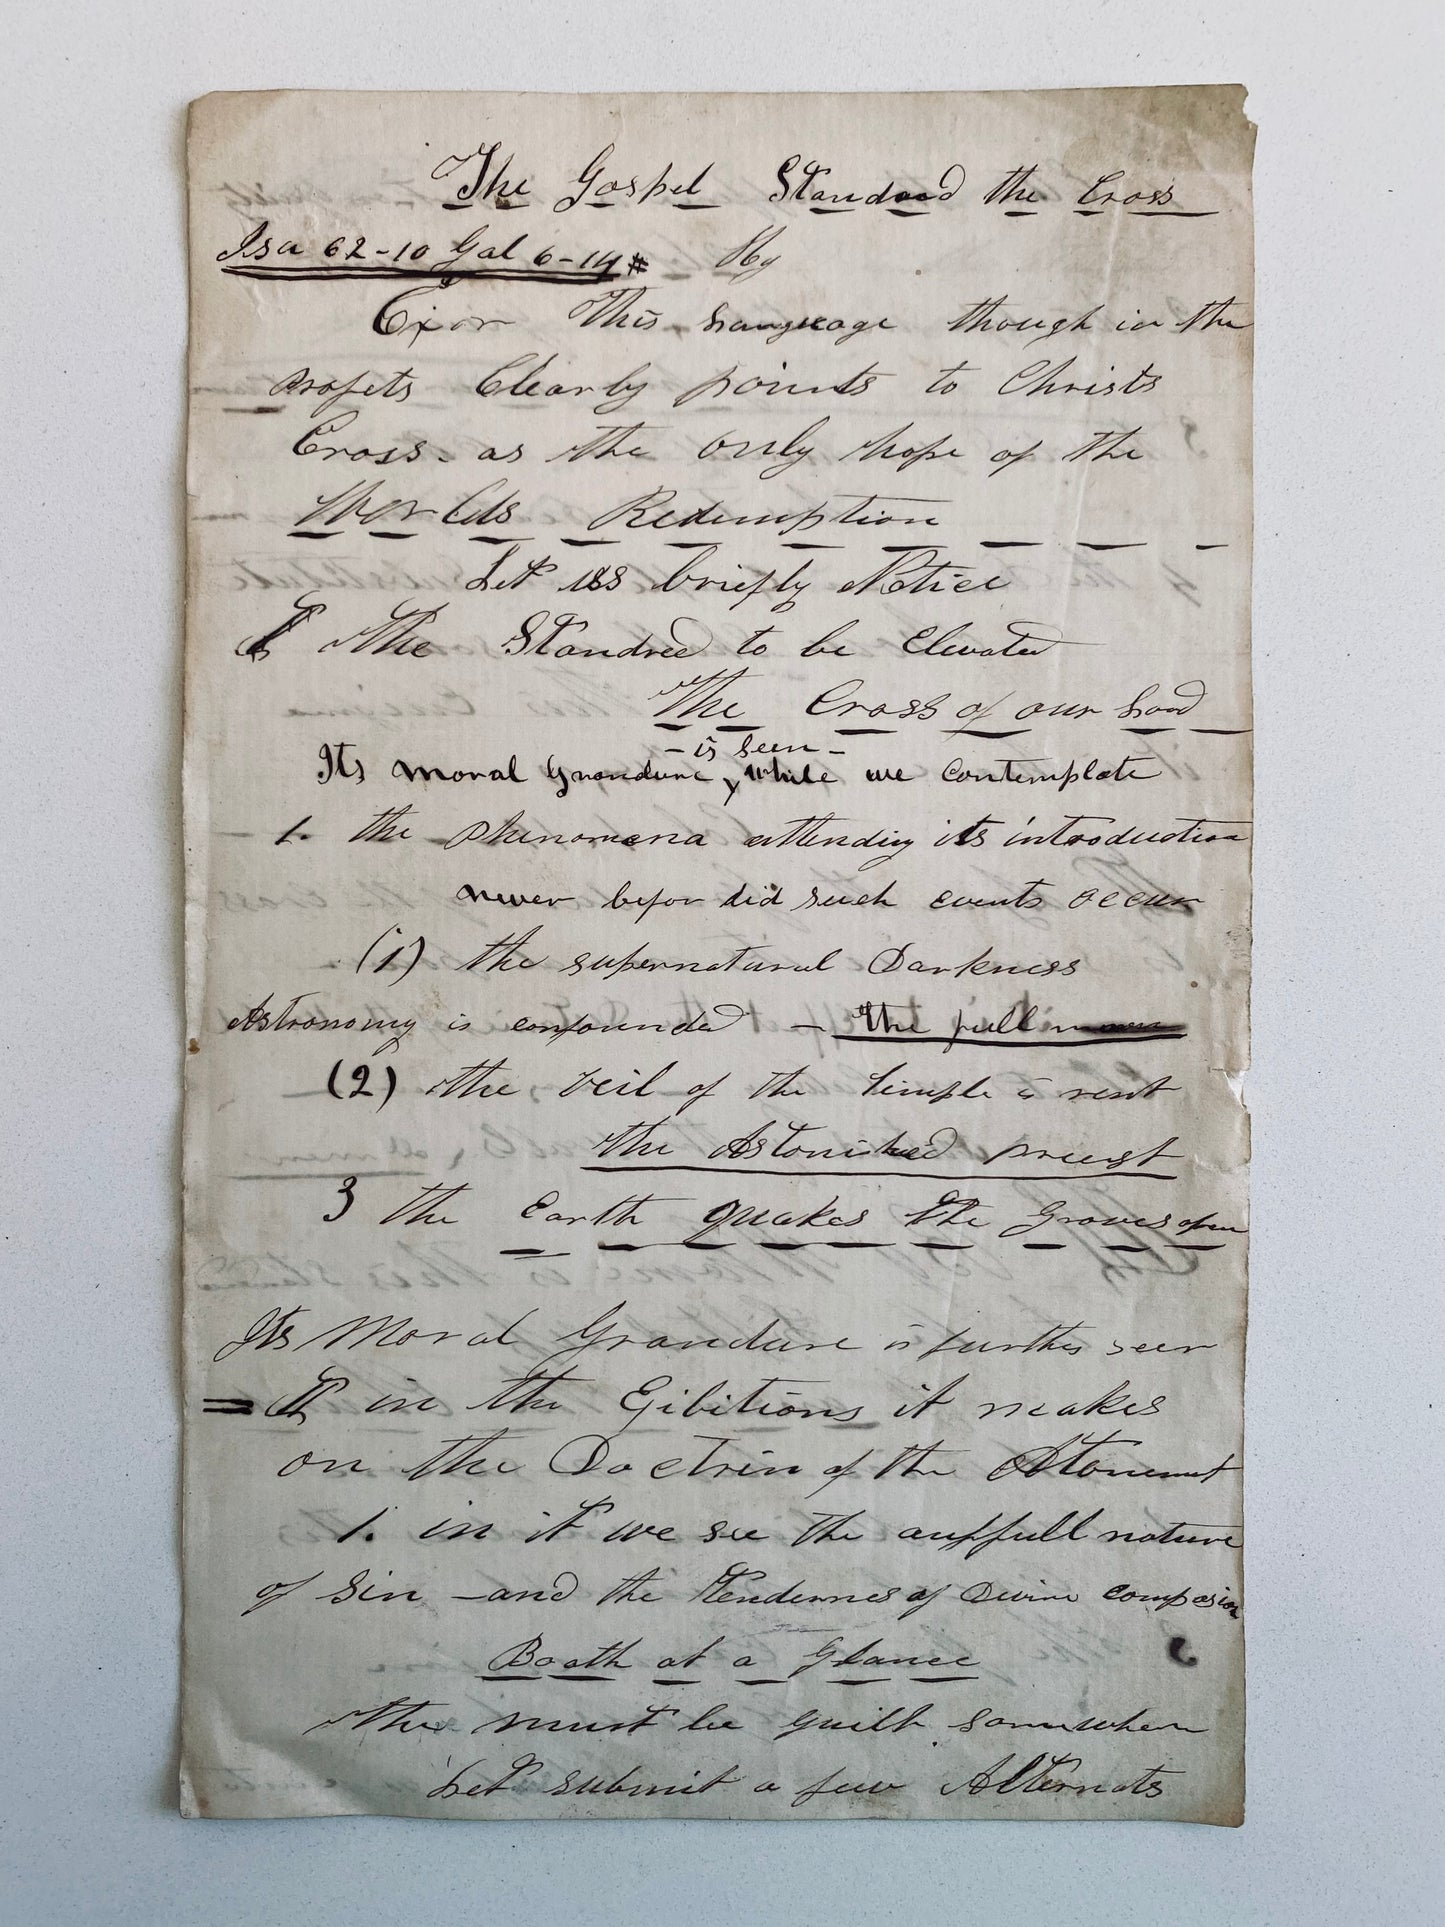 The Gospel Standard the Cross
Isa 62-10 Gal 6-14 # Hy
Exor This Language though in the
profets Clearly points to Christs
Cross. as the only hope of the
Worlds Redemption
Let us briefly Notice
I The Standred to be Elevated
The Cross of our Lord
- is seen -
Its moral Grandure, while we contemplate
1. the Phenomena attending its introduction
never befor did such events occur
(1) the supernatural Darkness
Astronomy is confounded - the full moon
(2) the veil of the temple is rent
the Astonished priest
3 the Earth quakes the Graves open
Its Moral Grandure is further seen
= I in the Exibitions it makes
on the Doctrin of the Atonement
1. in it we see the auffull nature
of Sin - and the tendernes of Divine compasion
Booth at a Glance
the must be guilt somewhere
Let submit a few Alternats